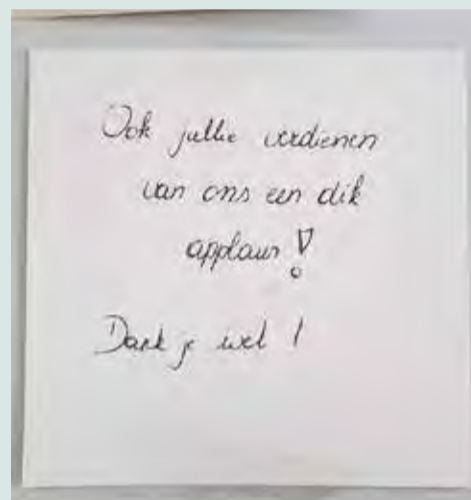 Ook jullie verdienen
van ons een dik
applaus!
Dank je wel!